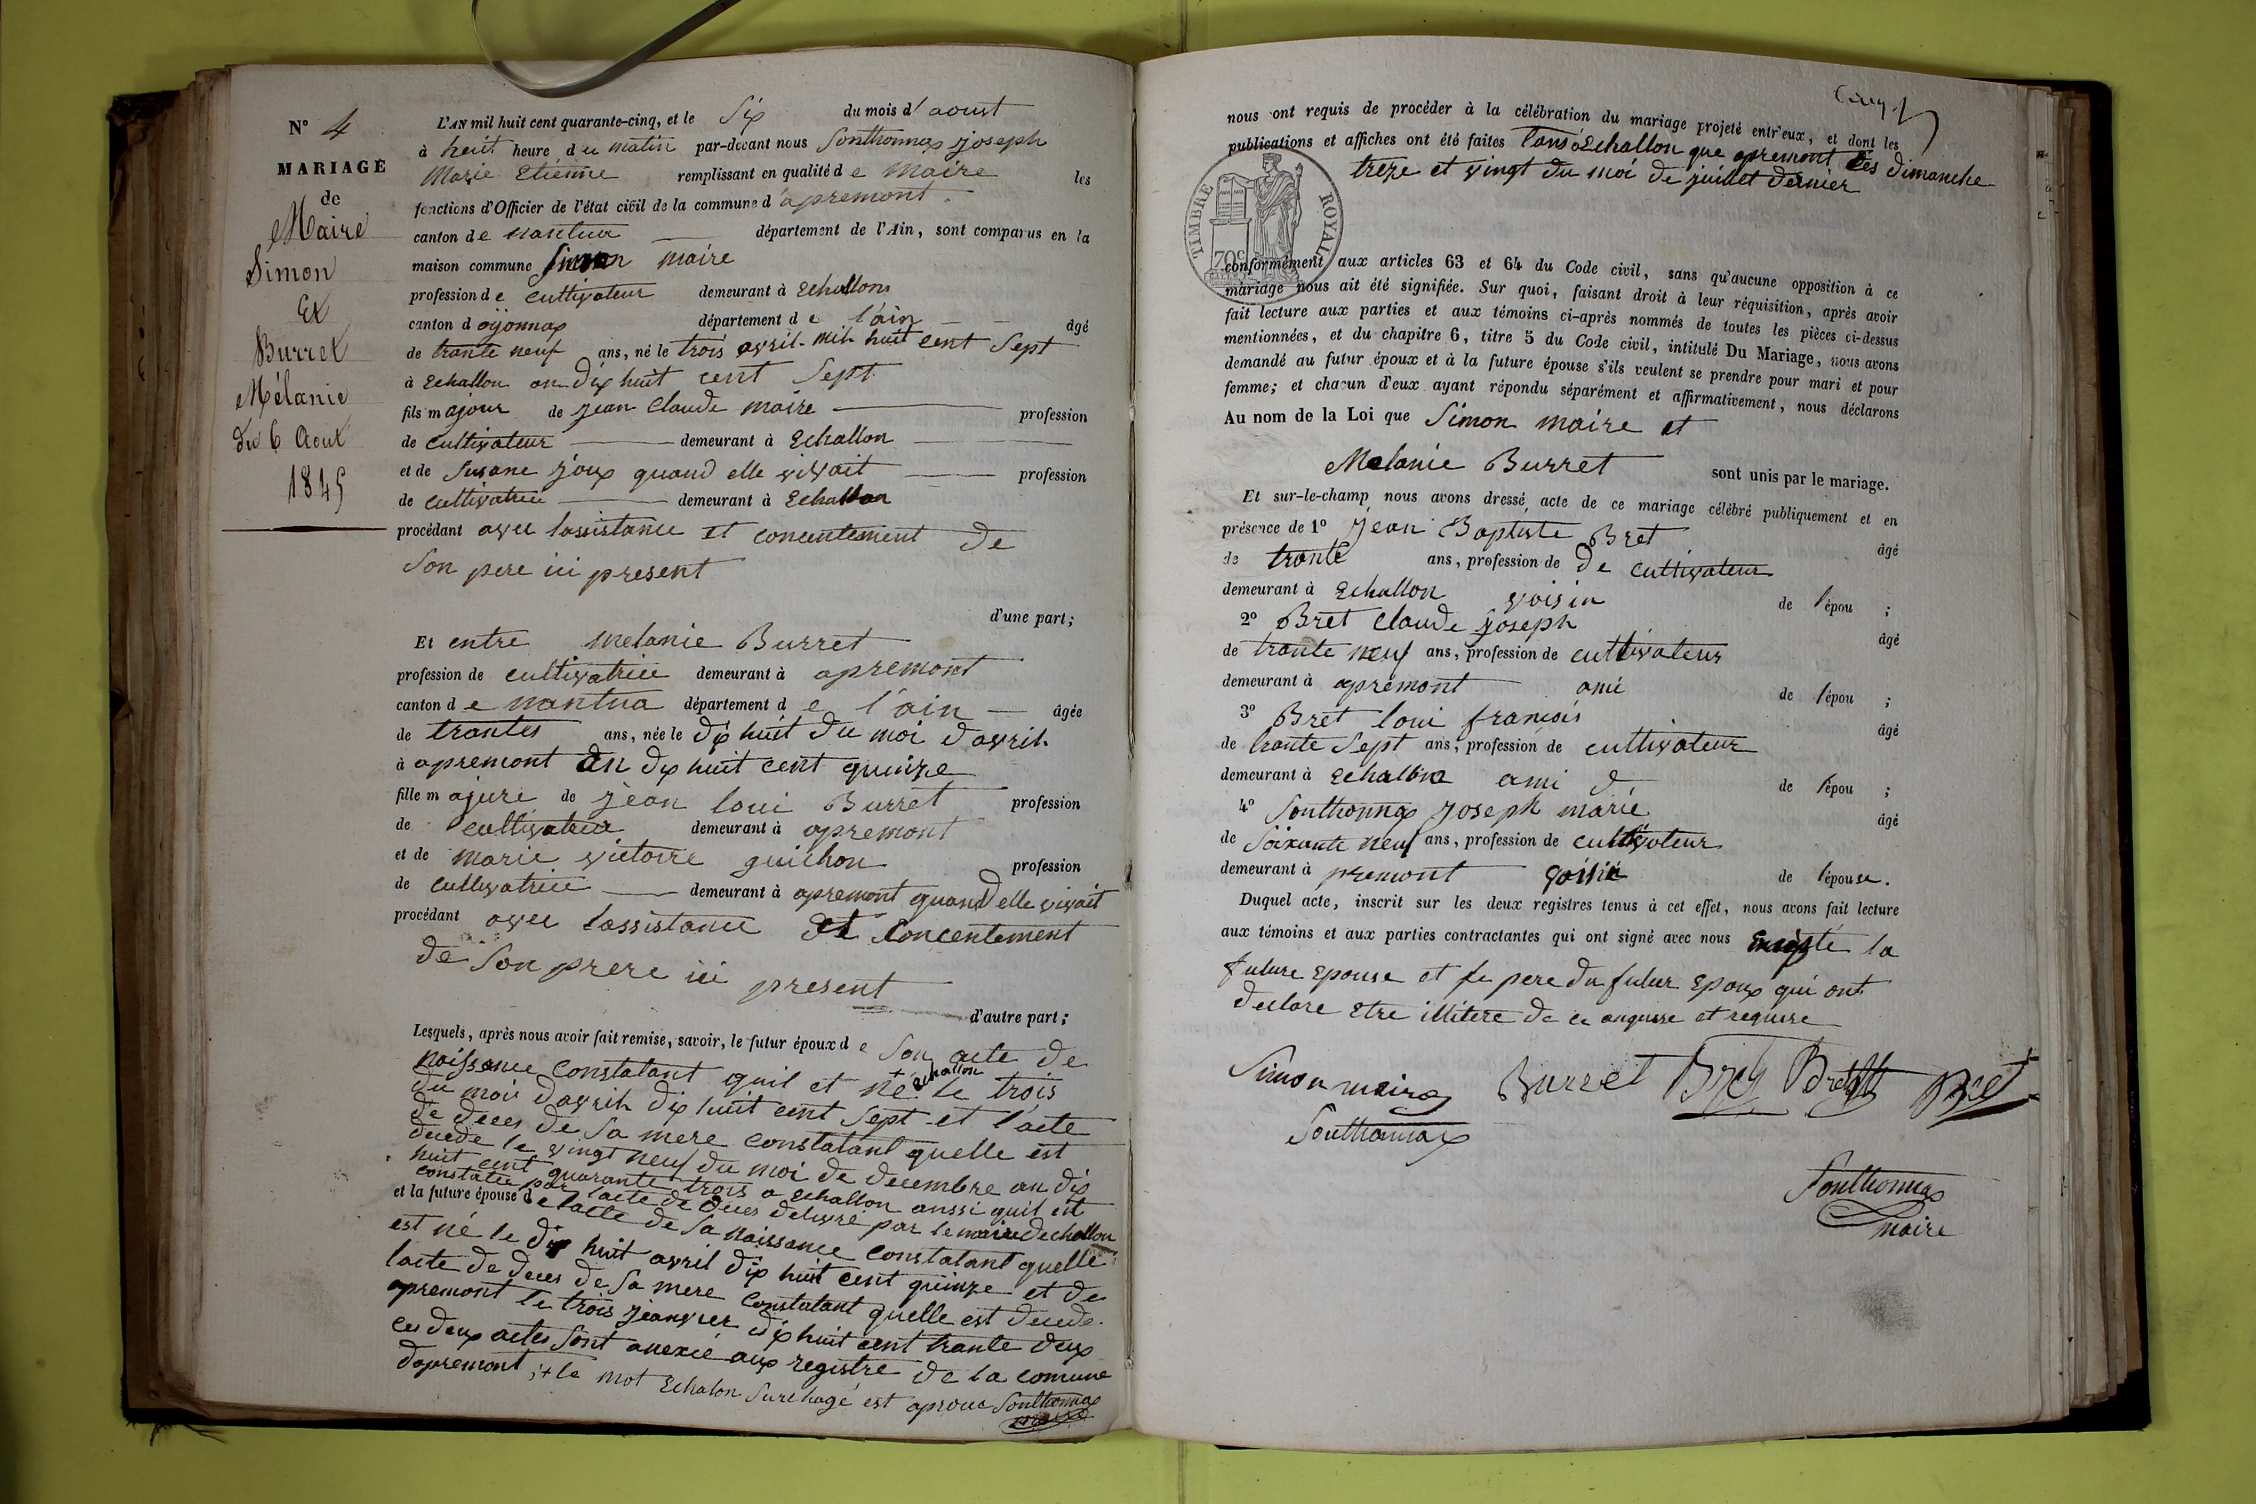 N° 4
MARIAGE
de
Maire
Simon
Et
Burret
Mélanie
du 6 Aout
1845
L'AN mil huit cent quarante-cinq, et le Six du mois d'aoust
à heuit heure du matin par-devant nous Sonthonnax joseph
Marie Etiénne remplissant en qualité de Maire les
fonctions d'Officier de l'état civil de la commune d'apremont.
canton de nantua département de l'Ain, sont comparus en la
maison commune Simon maire
profession de cultivateur demeurant à Echallons
canton d oyonnax département de l'ain âgé
de trante neuf ans, né le trois avril mil huit cent Sept
à Echallon an dix huit cent Sept
fils majour de jean Claude maire profession
de cultivateur demeurant à Echallon
et de Susane joux quand elle vivait profession
de cultivatrice demeurant à Echallon
procédant avec lassistance et concentement de
Son pere ici present
d'une part;
Et entre melanie Burret
profession de cultivatrice demeurant à apremont
canton de nantua département de l'ain âgée
de trantes ans, née le dix huit du moi d'avril
à apremont an dix huit cent quinze
fille majure de jean loui Burret profession
de cultivateur demeurant à apremont
et de marie victoire guichon profession
de cultivatrice demeurant à apremont quand elle vivait
procédant avec lassistance et Concentement
de Son prere ici present
d'autre part;
Lesquels, après nous avoir fait remise, savoir, le futur époux de Son acte de
naissance Constatant quil et né + Echallon le trois
du moi davril dix huit cent Sept et l'acte
de deces de Sa mere Constatant quelle est
decede le vingt neuf du moi de decembre an dix
huit cent quarante trois a Echallon aussi quil est
constatée par lacte de deces delivré par le maire dechallon
et la future épouse de lacte de Sa naissance Constatant quelle
est né le dix huit avril dix huit cent quinze et de
lacte de deces de Sa mere Constatant quelle est decede
apremont le trois jeanvier dix huit cent trante deux
ces deux actes Sont anexié aux registre de la comune
dapremont ; + le mot Echalon Surchagé est aprouc Sonthonnax
maire
nous ont requis de procéder à la célébration du mariage projeté entr'eux, et dont les
publications et affiches ont été faites tans à Echallon que apremont Les dimanche
treze et vingt du moi de juillet dernier
TIMBRE ROYAL
70c
conformément aux articles 63 et 64 du Code civil, sans qu'aucune opposition à ce
mariage nous ait été signifiée. Sur quoi, faisant droit à leur réquisition, après avoir
fait lecture aux parties et aux témoins ci-après nommés de toutes les pièces ci-dessus
mentionnées, et du chapitre 6, titre 5 du Code civil, intitulé Du Mariage, nous avons
demandé au futur époux et à la future épouse s'ils veulent se prendre pour mari et pour
femme; et chacun d'eux ayant répondu séparément et affirmativement, nous déclarons
Au nom de la Loi que Simon maire et
Melanie Burret sont unis par le mariage.
Et sur-le-champ nous avons dressé acte de ce mariage célébré publiquement et en
présence de 1° jean Baptiste Bret âgé
de trante ans, profession de de cultivateur
demeurant à Echallon voisin de l'épou ;
2° Bret Claude joseph âgé
de trante neuf ans, profession de cultivateur
demeurant à apremont ami de l'épou ;
3° Bret loui francois âgé
de trante Sept ans, profession de cultivateur
demeurant à Echallon ami d de l'épou ;
4° Sonthonnax joseph marie âgé
de Soixante neuf ans, profession de cultivateur
demeurant à premont voisin de l'épouse.
Duquel acte, inscrit sur les deux registres tenus à cet effet, nous avons fait lecture
aux témoins et aux parties contractantes qui ont signé avec nous la
future Epouse et le pere du futur Epoux qui ont
declare Etre illitere de ce anquisse et requise
Simon maire Burret Bret Bret Bret
Sonthonnax
Sonthonnax
maire